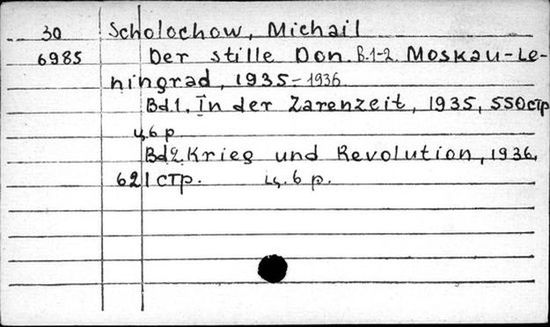 30 Scholochow, Michail
6985 Der stille Don. B.1-2. Moskau-Le-
ningrad, 1935-1936
Bd1. In der Zarenzeit, 1935, 550стр
ц.6 р.
Bd2. Krieg und Revolution, 1936,
621 стр. ц. 6 р.